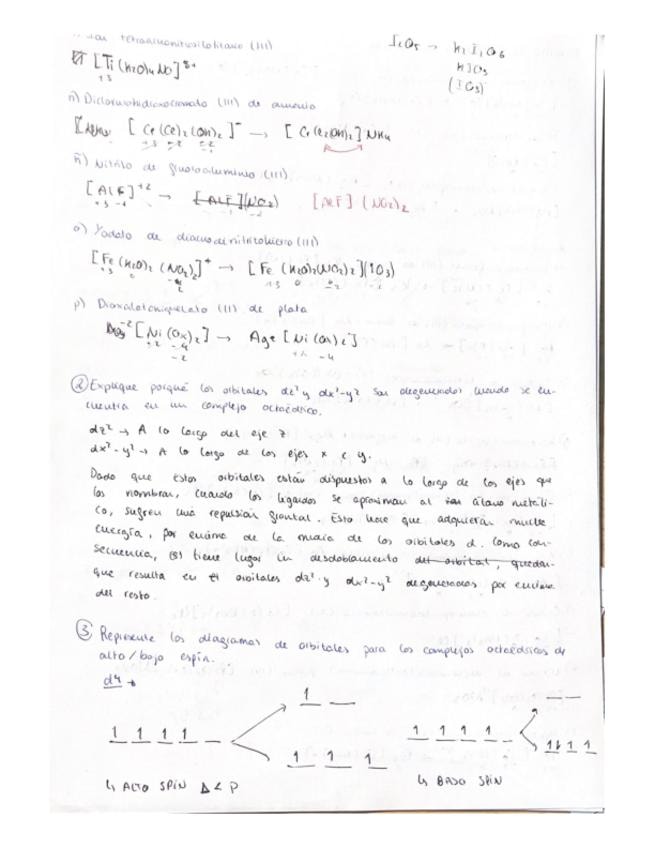 tetraacuonitrosilotitanio (III)
I₂O₅ → H₂I₂O₆
HIO₃
(IO₃)⁻
[Ti(H₂O)₄NO]³⁺
+3
n) Diclorodihidroxocromato (III) de amonio
[Cr(Cl)₂(OH)₂]⁻ →
ñ) Nitrito de fluoroaluminio (III)
[AlF]⁺² → [AlF](NO₂) [AlF](NO₂)₂
+3 -1
o) Yodato de diacuodinitritohierro (III)
[Fe(H₂O)₂(NO₂)₂]⁺ → [Fe(H₂O)₂(NO₂)₂](IO₃)
+3 0
p) Dioxalatoniquelato (II) de plata
⁻²[Ni(Ox)₂] → Ag₂[Ni(Ox)₂]
+2 -4
-2
② Explique porqué los orbitales dz² y dx²-y² son degenerados cuando se en-
cuentra en un complejo octaédrico.
dz² → A lo largo del eje z
dx²-y² → A lo largo de los ejes x e y.
Dado que estos orbitales están dispuestos a lo largo de los ejes que
los nombran, cuando los ligandos se aproximan al átomo metáli-
co, sufren una repulsión frontal. Esto hace que adquieran mucha
energía, por encima de la media de los orbitales d. Como con-
secuencia, tiene lugar un desdoblamiento del orbital, quedan-
que resulta en orbitales dz² y dx²-y² degenerados por encima
del resto.
③ Represente los diagramas de orbitales para los complejos octaédricos de
alto/bajo espín.
d4 →
1
1 1 1 1
1 1 1
↳ ALTO SPIN Δ < P
1 1 1 1
1↓ 1 1
↳ BAJO SPIN